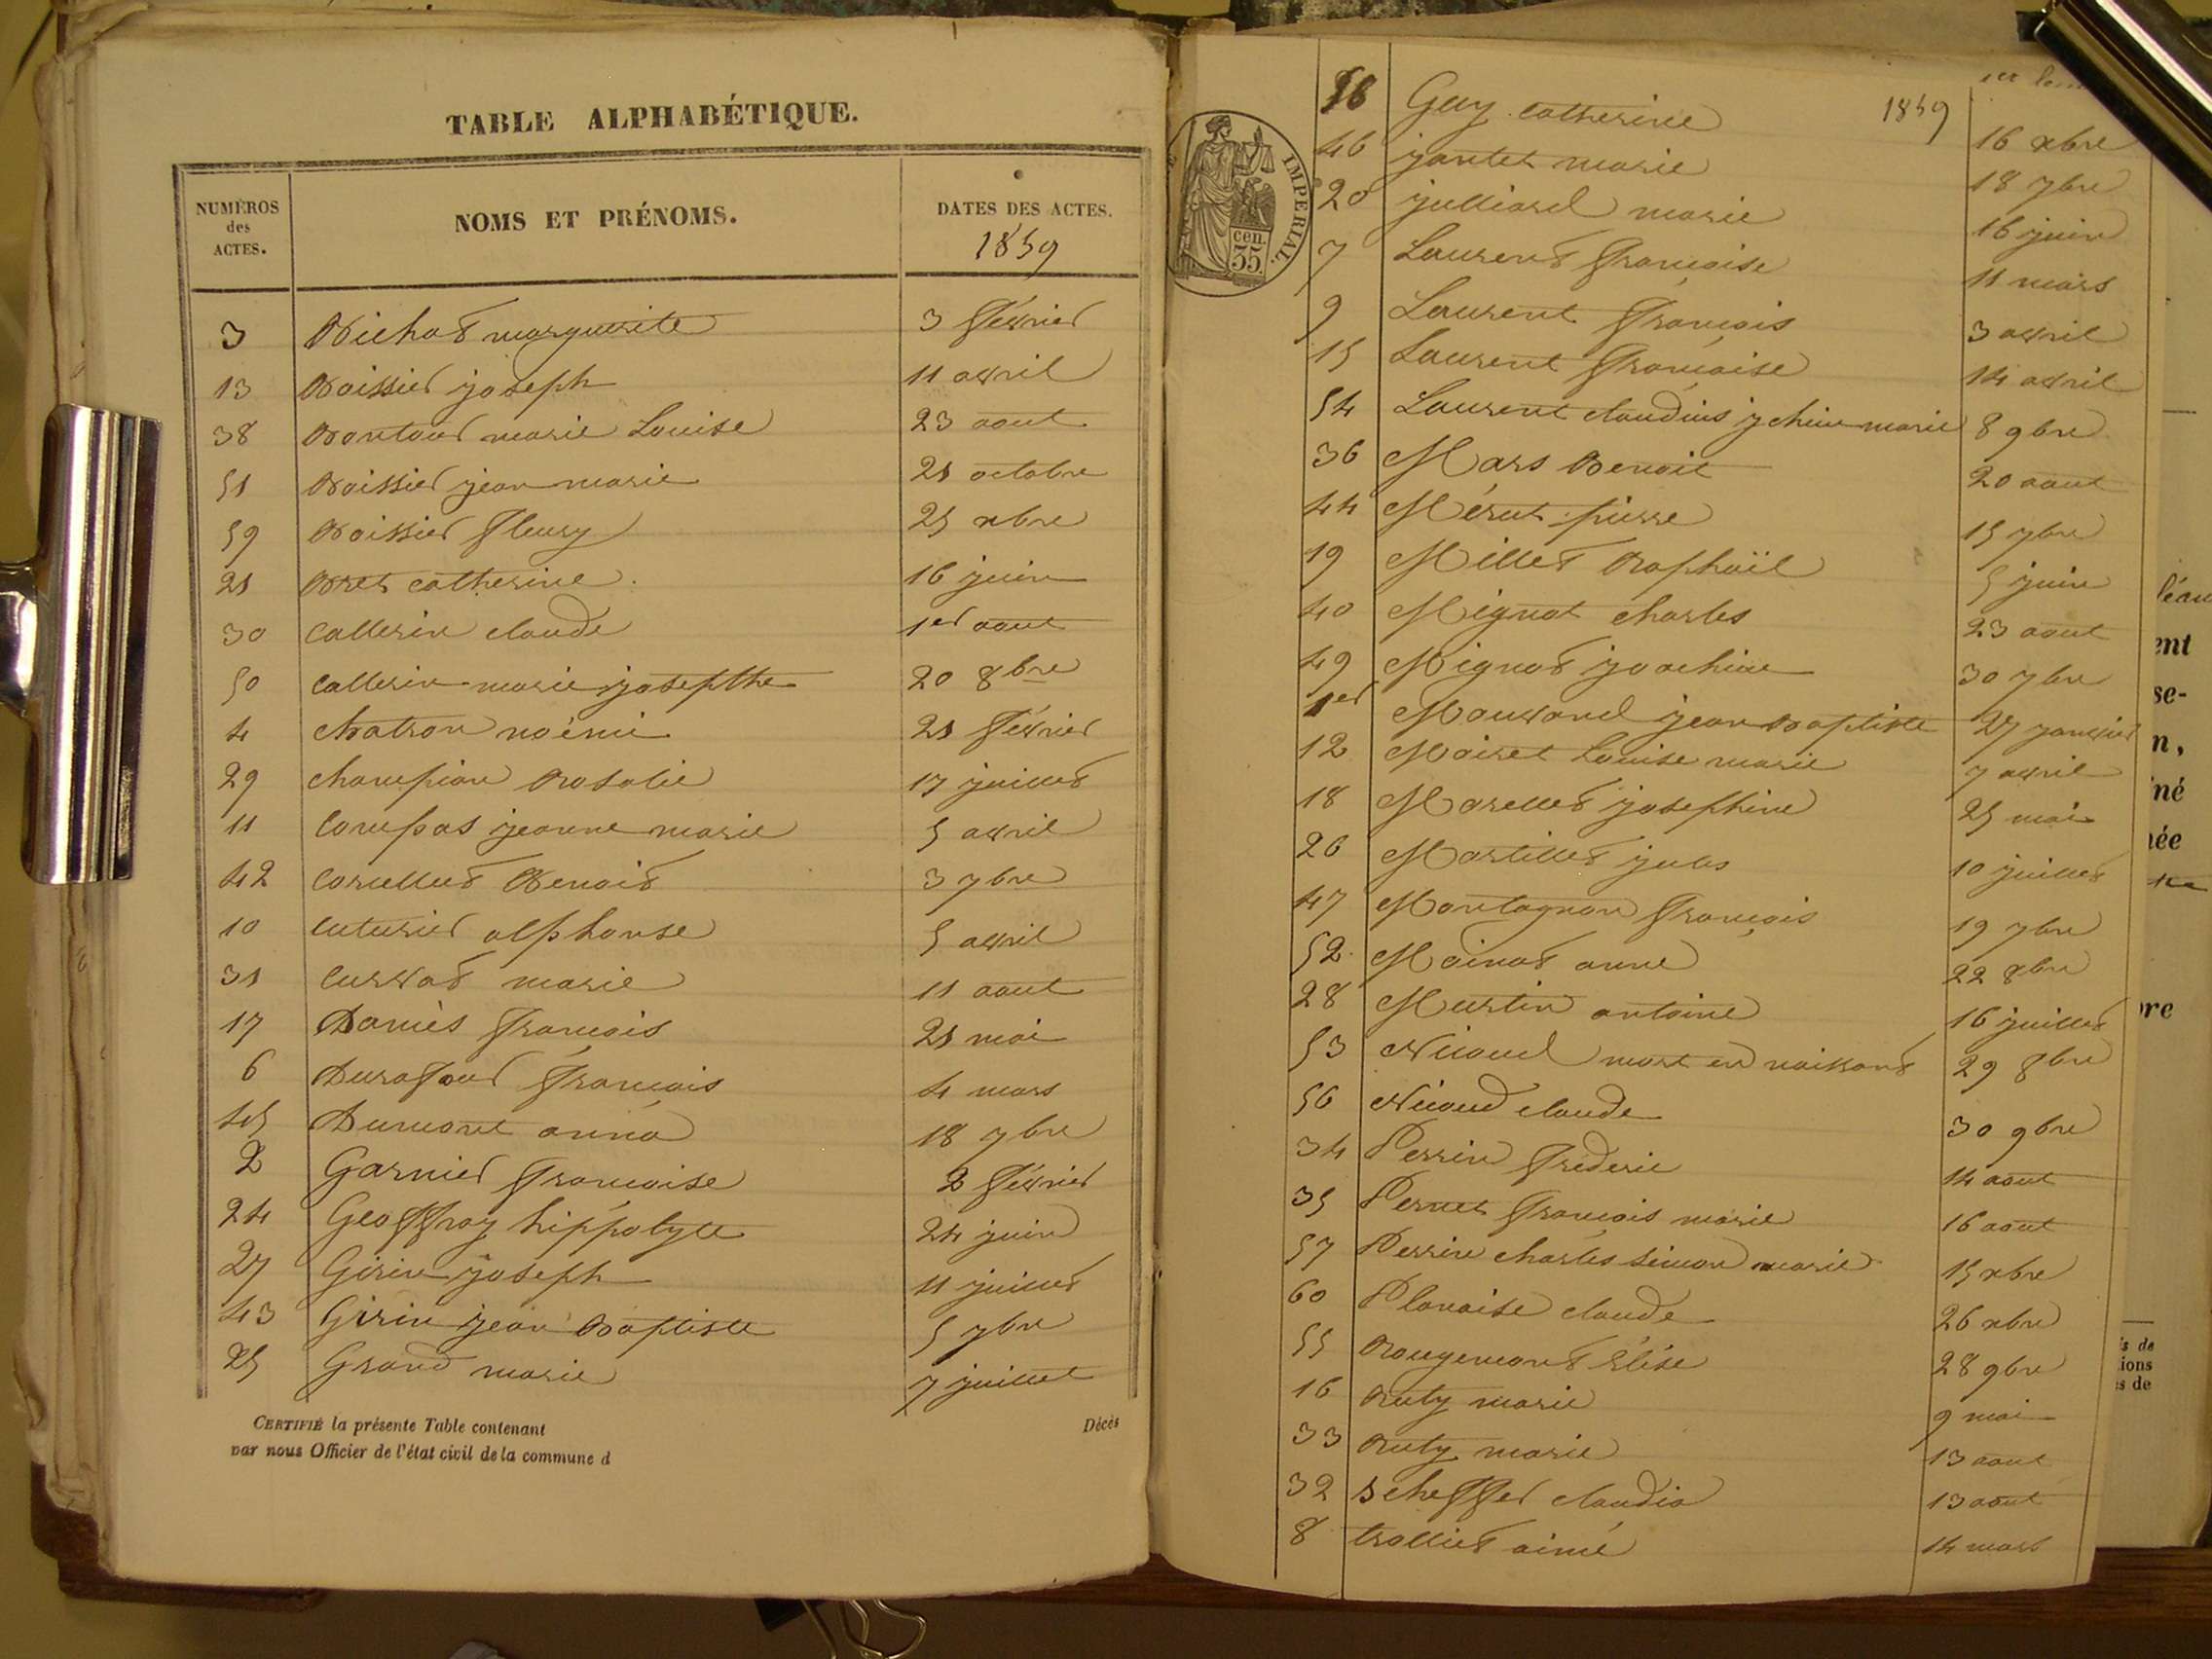 TABLE ALPHABÉTIQUE.
NUMÉROS des ACTES.
NOMS ET PRÉNOMS.
DATES DES ACTES.
1859
3 Bichat marguerite 3 février
13 Boissier joseph 11 avril
38 Bontour marie Louise 23 aout
51 Boissier jean marie 21 octobre
59 Boissier fleury 25 xbre
21 Bret catherine 16 juin
30 Callerin claude 1er aout
50 Callerin marie josephthe 20 8bre
4 chatron noémi 21 février
29 champion Rosalie 17 juillet
11 Compas jeanne marie 5 avril
42 Corcellut Benoit 3 7bre
10 Cuturier alphonse 5 avril
31 Curvat marie 11 aout
17 Daniès françois 21 mai
6 Durafour françois 4 mars
45 Dumont anna 18 7bre
2 Garnier françoise 2 février
24 Geoffray hippolyte 24 juin
27 Girin joseph 11 juillet
43 Girin jean Baptiste 5 7bre
25 Grand marie 7 juillet
CERTIFIÉ la présente Table contenant Décès
par nous Officier de l'état civil de la commune d
IMPERIAL.
cen.
35
1859
Guy catherine 16 xbre
46 jantet marie 18 7bre
20 julliard marie 16 juin
7 Laurent françoise 11 mars
9 Laurent françois 3 avril
15 Laurent françoise 14 avril
54 Laurent claudius marie 8 9bre
36 Mars Benoit 20 aout
44 Mérut pierre 15 7bre
19 Millet Raphaïl 5 juin
40 Mignot charles 23 aout
49 Mignot joachim 30 7bre
1er jean Baptiste 27 janvier
12 Moiret Louise marie 7 avril
18 Morellet josephine 25 mai
26 Martillet jules 10 juillet
47 Montagnon françois 19 7bre
52 Moinat anne 22 8bre
28 Murtin antoine 16 juillet
53 Nicoud mort en naissant 29 8bre
56 Nicoud claude 30 9bre
34 Perrin fréderic 14 aout
35 Pernet françois marie 16 aout
57 Perrin charles simon marie 15 xbre
60 Planaise claude 26 xbre
55 Rougemont Elise 28 9bre
16 Ruty marie 9 mai
33 Ruty marie 13 aout
32 scheffer claudia 13 aout
8 trolliet aimé 14 mars